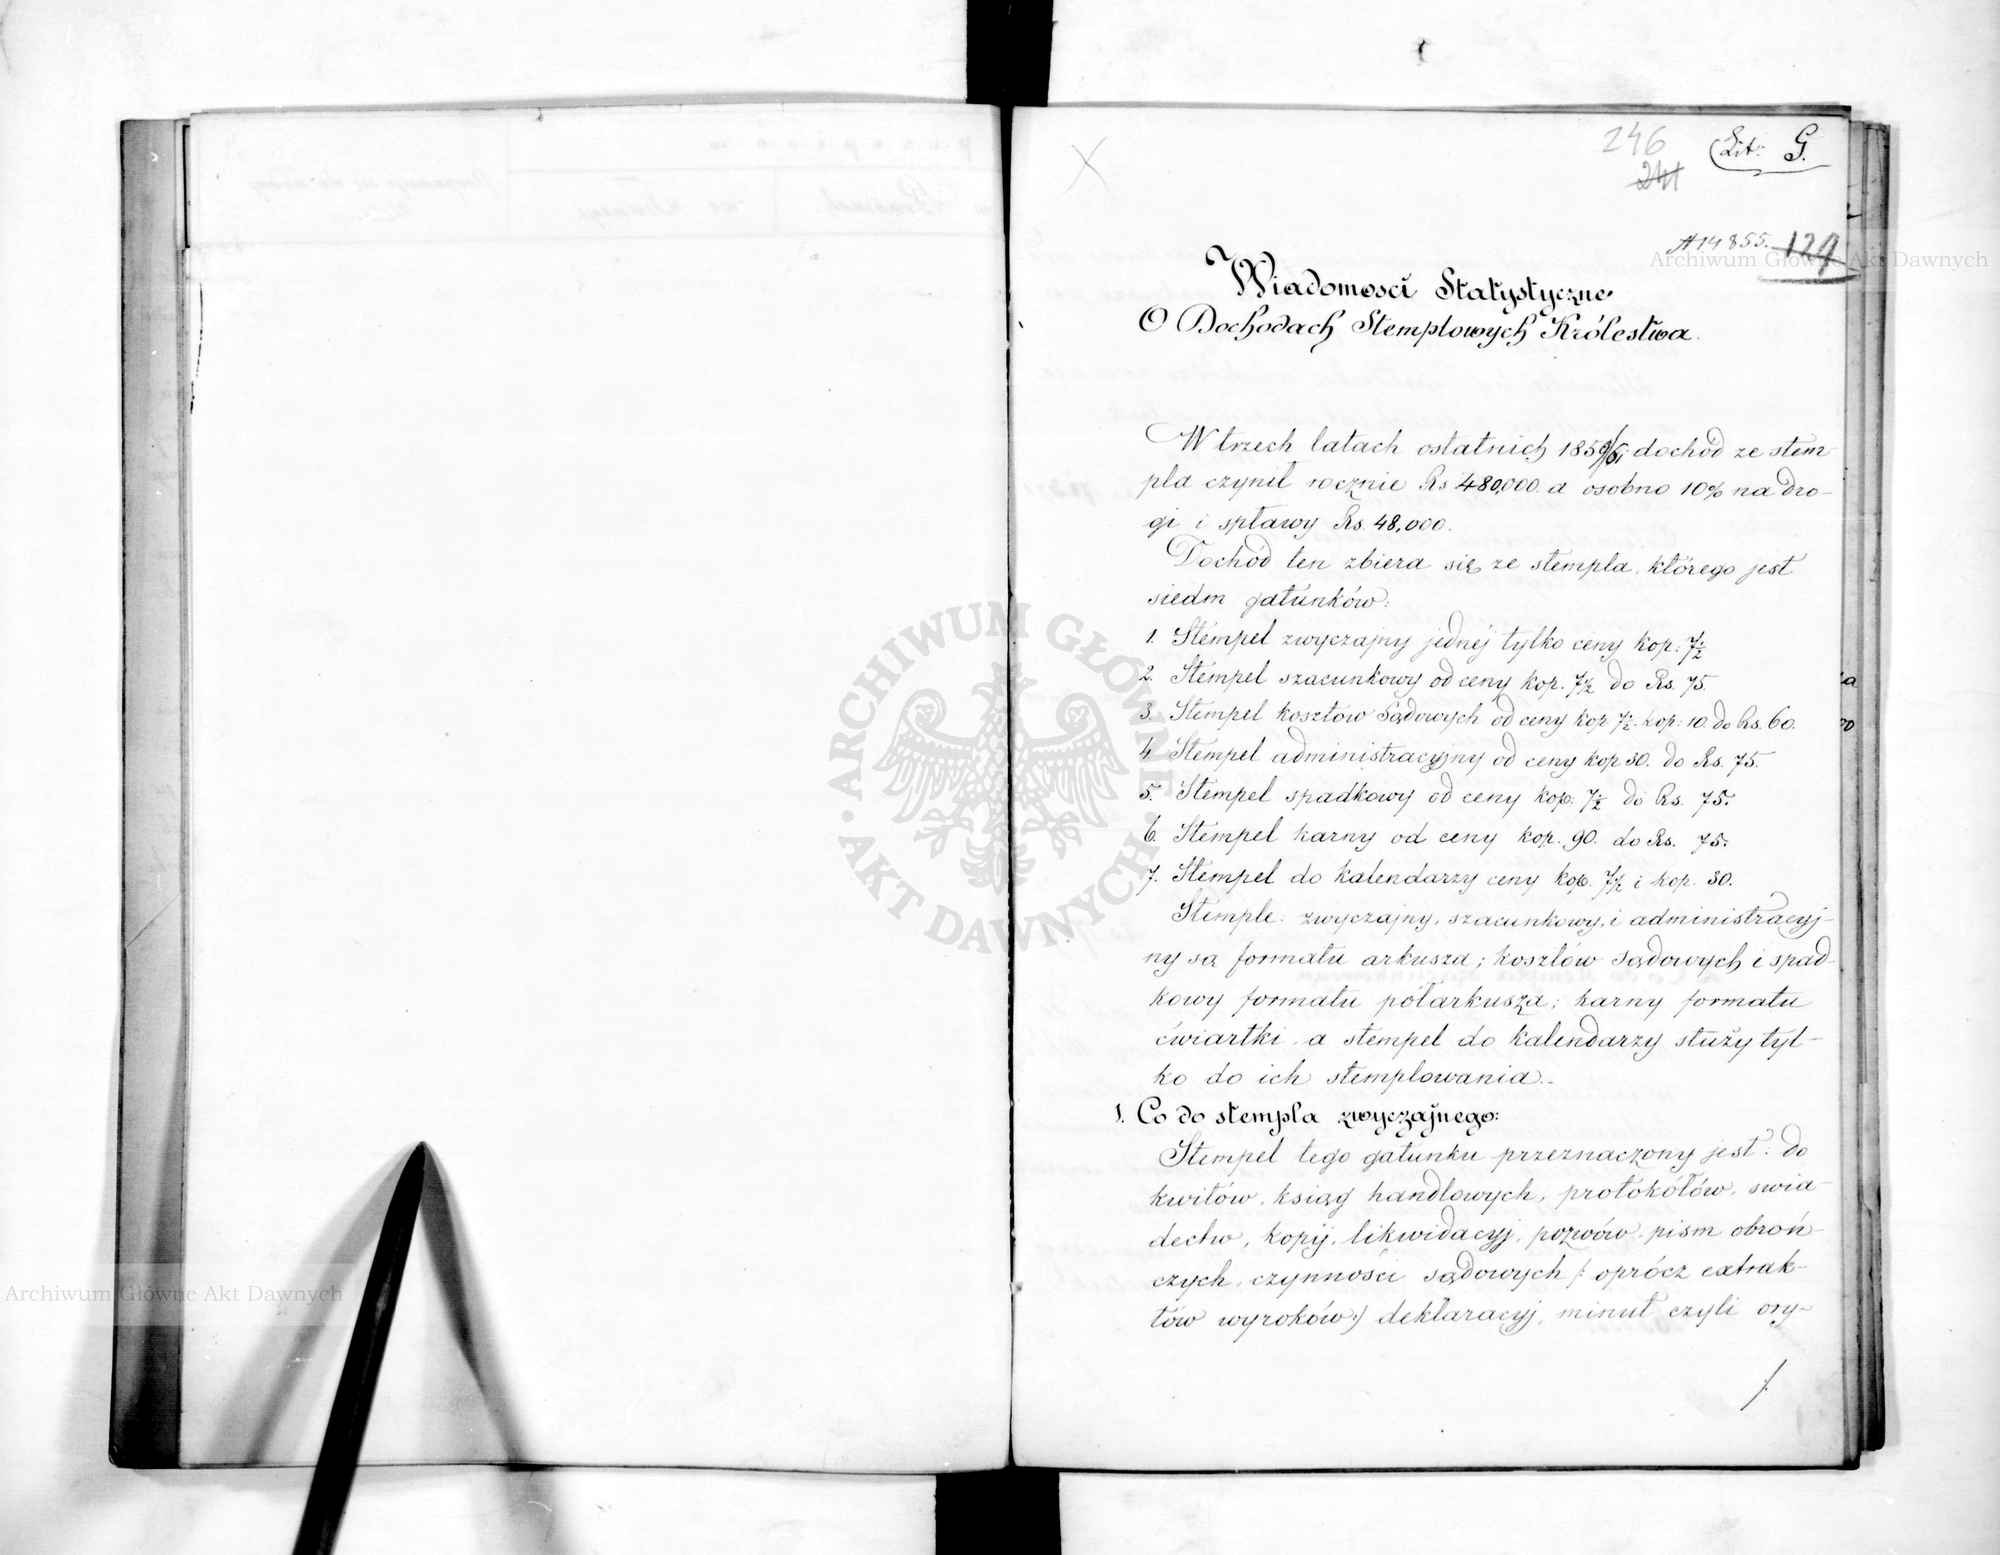 246
241
Lit: G.
№ 14855. 129
Wiadomości Statystyczne
O Dochodach Stemplowych Królestwa.
W trzech latach ostatnich 1859/61 dochód ze stem-
pla czynił rocznie Rs 480,000. a osobno 10% na dro-
gi i spławy Rs. 48,000.
Dochód ten zbiera się ze stempla, którego jest
siedm gatunków:
1. Stempel zwyczajny jednéj tylko ceny kop: 7½
2. Stempel szacunkowy od ceny kop. 7½ do Rs. 75.
3. Stempel kosztów Sądowych od ceny kop 7½. kop: 10. do Rs. 60.
4. Stempel administracyjny od ceny kop 30. do Rs. 75.
5. Stempel spadkowy od ceny kop: 7½ do Rs. 75.
6. Stempel karny od ceny kop. 90. do Rs. 75.
7. Stempel do kalendarzy ceny kop. 7½ i kop. 30.
Stemple: zwyczajny, szacunkowy, i administracyj-
ny są formatu arkusza; kosztów sądowych i spad-
kowy formatu półarkusza; karny formatu
ćwiartki, a stempel do kalendarzy służy tyl-
ko do ich stemplowania.-
1. Co do stempla zwyczajnego:
Stempel tego gatunku przeznaczony jest: do
kwitów, ksiąg handlowych, protokółów, swia-
dectw, kopij, likwidacyj, pozwów, pism obroń-
czych, czynności sądowych /: oprócz extrak-
tów wyroków:/ deklaracyj, minut czyli ory-
ARCHIWUM GŁÓWNE AKT DAWNYCH
Archiwum Główne Akt Dawnych
Archiwum Główne Akt Dawnych